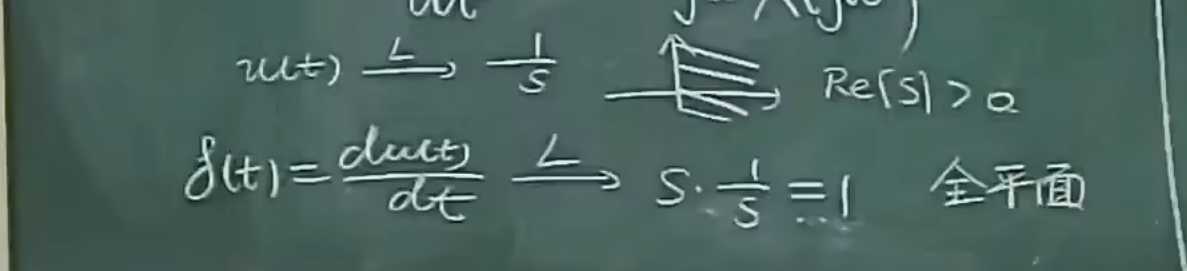 u(t) —L→ 1/s Re[S]>0
δ(t)=du(t)/dt —L→ S·1/s=1 全平面